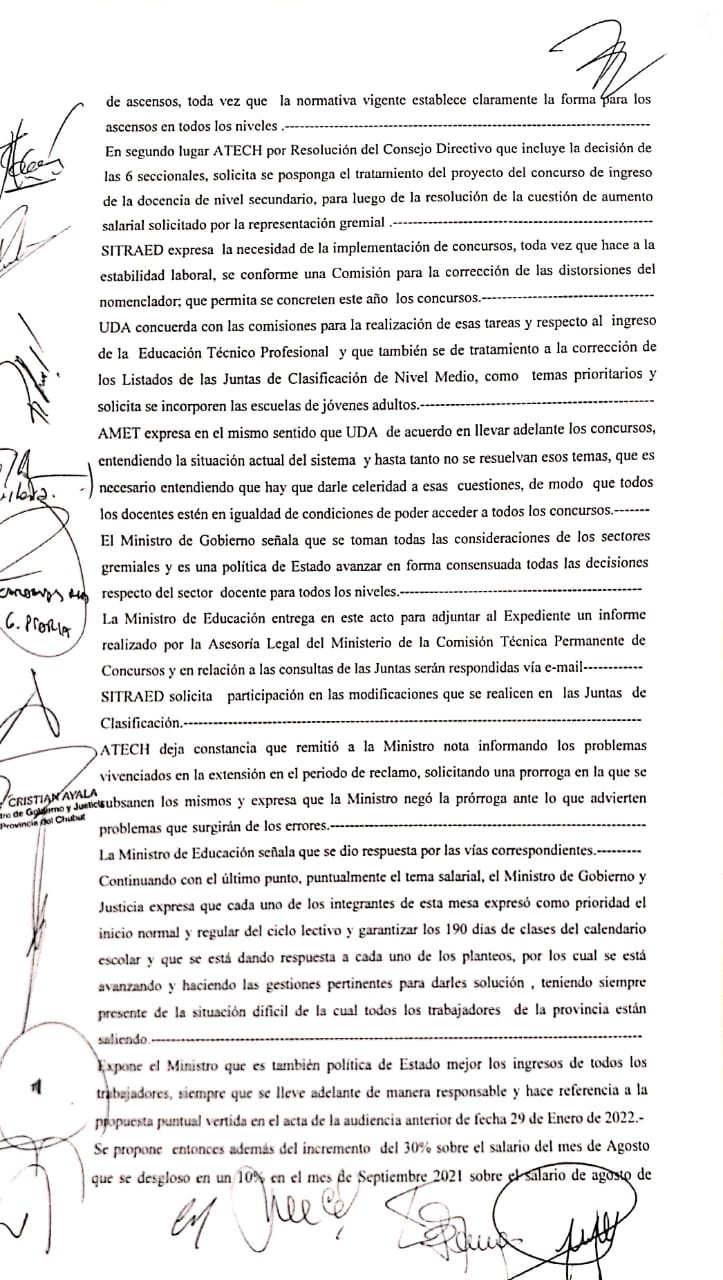 de ascensos, toda vez que la normativa vigente establece claramente la forma para los
ascensos en todos los niveles .-----------------------------------------------------------------------
En segundo lugar ATECH por Resolución del Consejo Directivo que incluye la decisión de
las 6 seccionales, solicita se posponga el tratamiento del proyecto del concurso de ingreso
de la docencia de nivel secundario, para luego de la resolución de la cuestión de aumento
salarial solicitado por la representación gremial .----------------------------------------------------
SITRAED expresa la necesidad de la implementación de concursos, toda vez que hace a la
estabilidad laboral, se conforme una Comisión para la corrección de las distorsiones del
nomenclador; que permita se concreten este año los concursos.----------------------------------
UDA concuerda con las comisiones para la realización de esas tareas y respecto al ingreso
de la Educación Técnico Profesional y que también se de tratamiento a la corrección de
los Listados de las Juntas de Clasificación de Nivel Medio, como temas prioritarios y
solicita se incorporen las escuelas de jóvenes adultos.----------------------------------------------
AMET expresa en el mismo sentido que UDA de acuerdo en llevar adelante los concursos,
entendiendo la situación actual del sistema y hasta tanto no se resuelvan esos temas, que es
necesario entendiendo que hay que darle celeridad a esas cuestiones, de modo que todos
los docentes estén en igualdad de condiciones de poder acceder a todos los concursos.-------
El Ministro de Gobierno señala que se toman todas las consideraciones de los sectores
gremiales y es una política de Estado avanzar en forma consensuada todas las decisiones
respecto del sector docente para todos los niveles.---------------------------------------------------
La Ministro de Educación entrega en este acto para adjuntar al Expediente un informe
G. PIORIA
realizado por la Asesoría Legal del Ministerio de la Comisión Técnica Permanente de
Concursos y en relación a las consultas de las Juntas serán respondidas vía e-mail-----------
SITRAED solicita participación en las modificaciones que se realicen en las Juntas de
Clasificación.--------------------------------------------------------------------------------------------
ATECH deja constancia que remitió a la Ministro nota informando los problemas
vivenciados en la extensión en el periodo de reclamo, solicitando una prorroga en la que se
CRISTIAN AYALA
tro de Gobierno y Justicia
Provincia del Chubut
subsanen los mismos y expresa que la Ministro negó la prórroga ante lo que advierten
problemas que surgirán de los errores.-----------------------------------------------------------------
La Ministro de Educación señala que se dio respuesta por las vías correspondientes.---------
Continuando con el último punto, puntualmente el tema salarial, el Ministro de Gobierno y
Justicia expresa que cada uno de los integrantes de esta mesa expresó como prioridad el
inicio normal y regular del ciclo lectivo y garantizar los 190 dias de clases del calendario
escolar y que se está dando respuesta a cada uno de los planteos, por los cual se está
avanzando y haciendo las gestiones pertinentes para darles solución , teniendo siempre
presente de la situación dificil de la cual todos los trabajadores de la provincia están
saliendo.--------------------------------------------------------------------------------------------------
Expone el Ministro que es también política de Estado mejor los ingresos de todos los
trabajadores, siempre que se lleve adelante de manera responsable y hace referencia a la
propuesta puntual vertida en el acta de la audiencia anterior de fecha 29 de Enero de 2022.-
Se propone entonces además del incremento del 30% sobre el salario del mes de Agosto
que se desgloso en un 10% en el mes de Septiembre 2021 sobre el salario de agosto de